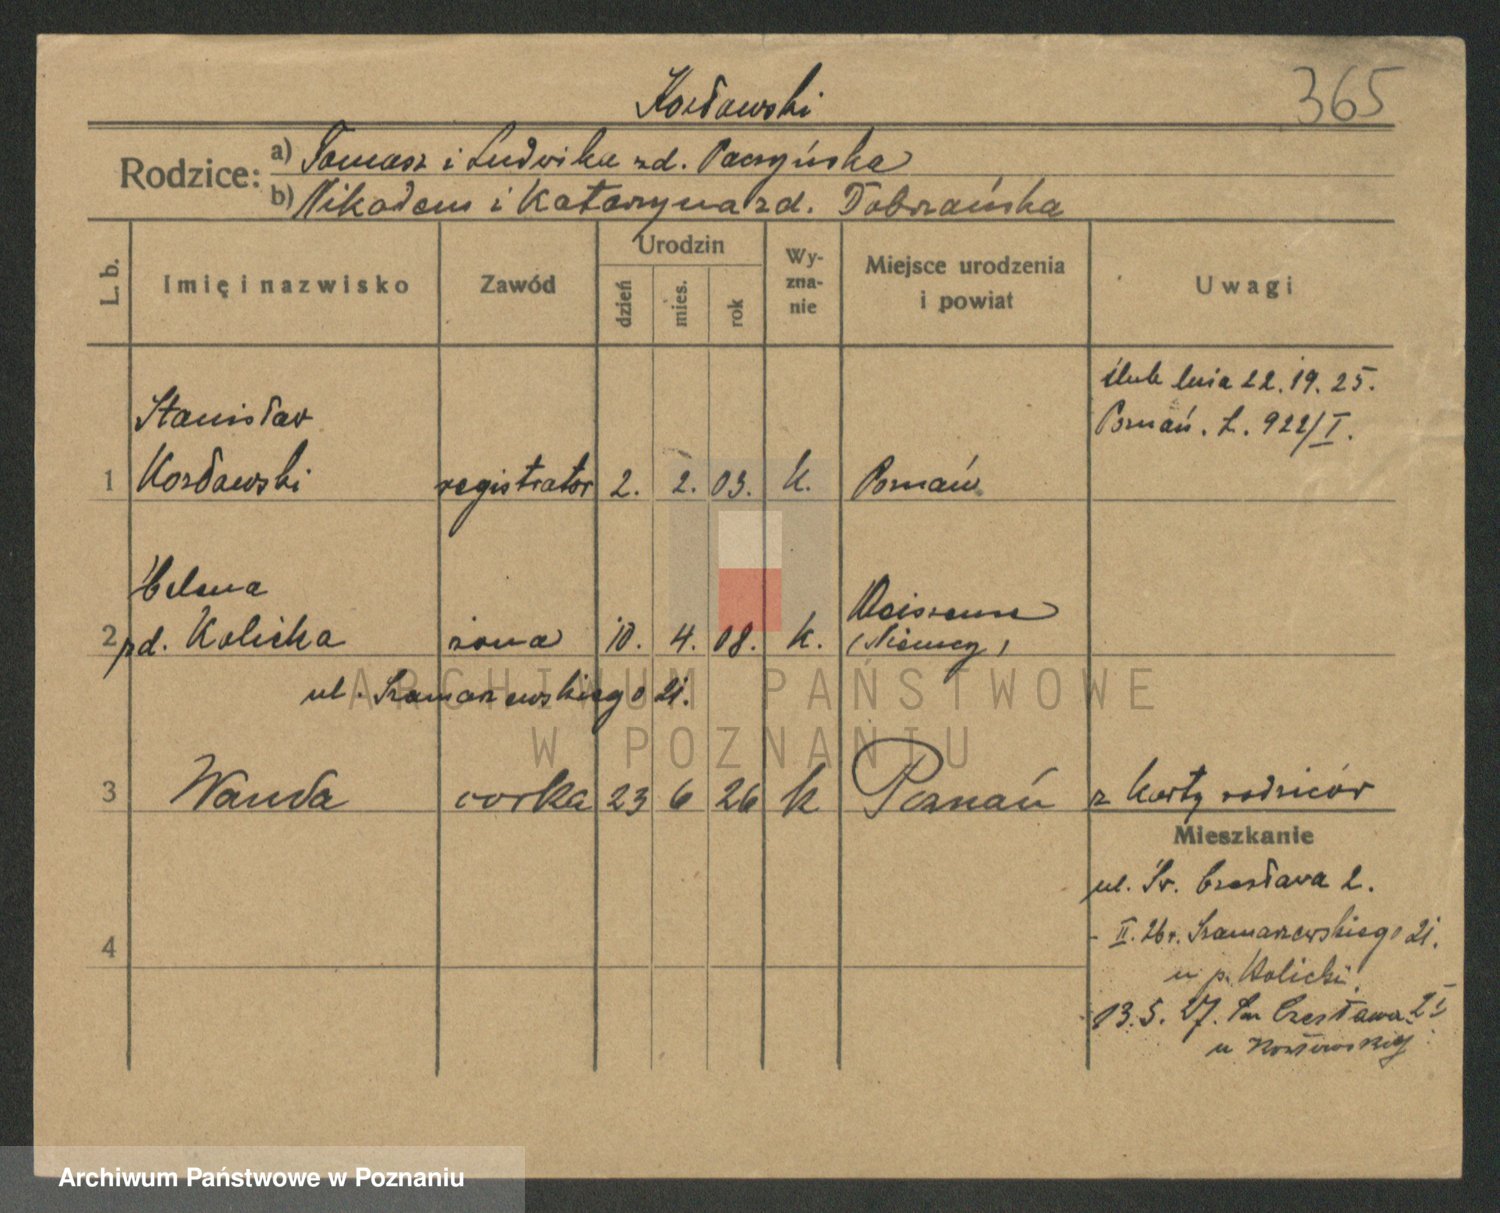 Kozłowski
365
Rodzice:
a) Tomasz i Ludwika zd. Paczyńska
b) Nikodem i Katarzyna zd. Dobrzańska
L. b.
Imię i nazwisko
Zawód
Urodzin
dzień
mies.
rok
Wy-
zna-
nie
Miejsce urodzenia
i powiat
Uwagi
ślub dnia 22.19.25.
Poznań. L. 922/I.
Stanisław
1 Kozławski registrator 2. 2. 03. k. Poznań
Helena
2 zd. Kolicka żona 10. 4. 08. k.
(Niemcy)
ul. Szamarzewskiego 21.
3 Wanda córka 23 6 26 k Poznań z karty rodziców
Mieszkanie
ul. Św. Czesława 2.
- II. 26r. Szamarzewskiego 21.
u p. Kolicki.
4
13.5.27. Św Czesława 2 I
u
ARCHIWUM PAŃSTWOWE
W POZNANIU
Archiwum Państwowe w Poznaniu